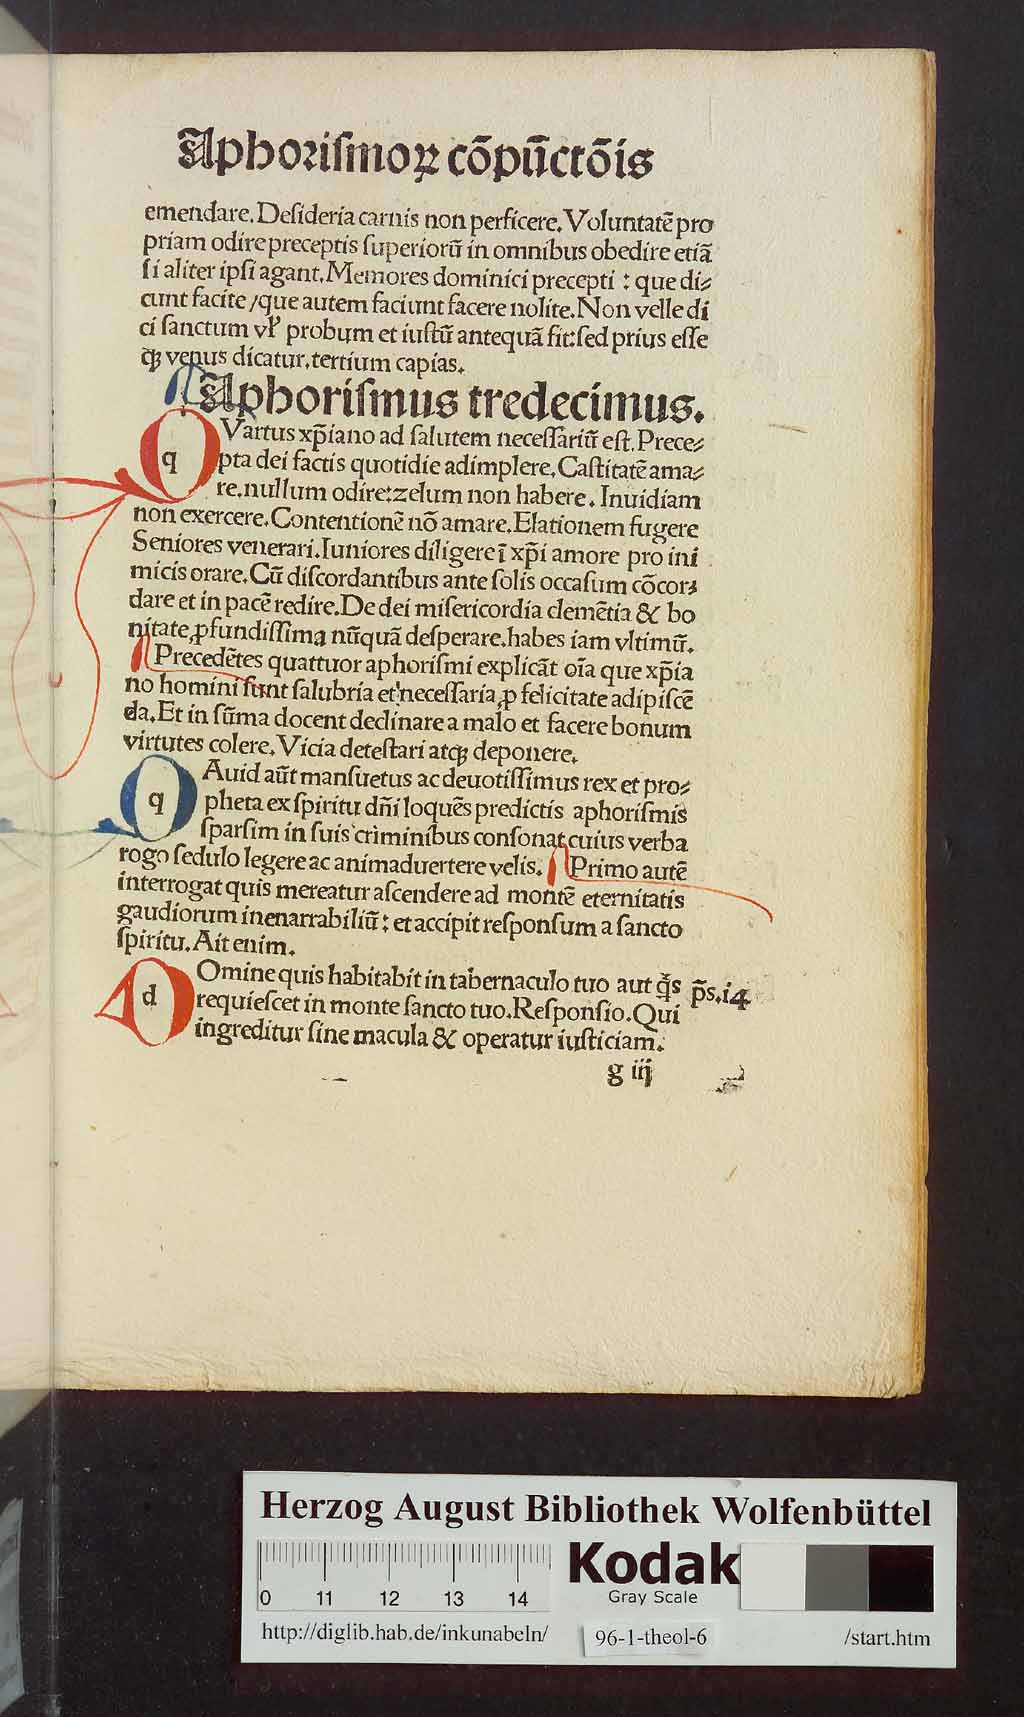 Aphorismoꝝ cōpūctōis
emendare. Desideria carnis non perficere. Voluntatē pro
priam odire preceptis superiorū in omnibus obedire etiā
si aliter ipsi agant. Memores dominici precepti : que di⸗
cunt facite / que autem faciunt facere nolite. Non velle di
ci sanctum vꝉ probum et iustū antequā fit: sed prius esse
ꝙ venus dicatur. tertium capias.
Aphorismus tredecimus.
QVartus xp̄iano ad salutem necessariū est. Prece⸗
pta dei factis quotidie adimplere. Castitatē ama⸗
re. nullum odire: zelum non habere. Inuidiam
non exercere. Contentionē nō amare. Elationem fugere
Seniores venerari. Iuniores diligere ī xp̄i amore pro ini
micis orare. Cū discordantibus ante solis occasum cōcor⸗
dare et in pacē redire. De dei misericordia clemētia & bo
nitate ꝓfundissima nūquā desperare. habes iam vltimū.
Precedētes quattuor aphorismi explicāt oīa que xp̄ia
no homini sunt salubria et necessaria ꝓ felicitate adipiscē
da. Et in sūma docent declinare a malo et facere bonum
virtutes colere. Vicia detestari atqꝫ deponere.
qAuid aūt mansuetus ac deuotissimus rex et pro⸗
pheta ex spiritu dn̄i loquēs predictis aphorismis
sparsim in suis criminibus consonat cuius verba
rogo sedulo legere ac animaduertere velis. Primo autē
interrogat quis mereatur ascendere ad montē eternitatis
gaudiorum inenarrabiliū : et accipit responsum a sancto
spiritu. Ait enim.
DOmine quis habitabit in tabernaculo tuo aut q̄s p̄s. i4
requiescet in monte sancto tuo. Responsio. Qui
ingreditur sine macula & operatur iusticiam.
g iij
Herzog August Bibliothek Wolfenbüttel
0 11 12 13 14
Kodak
Gray Scale
http://diglib.hab.de/inkunabeln/ 96-1-theol-6 /start.htm